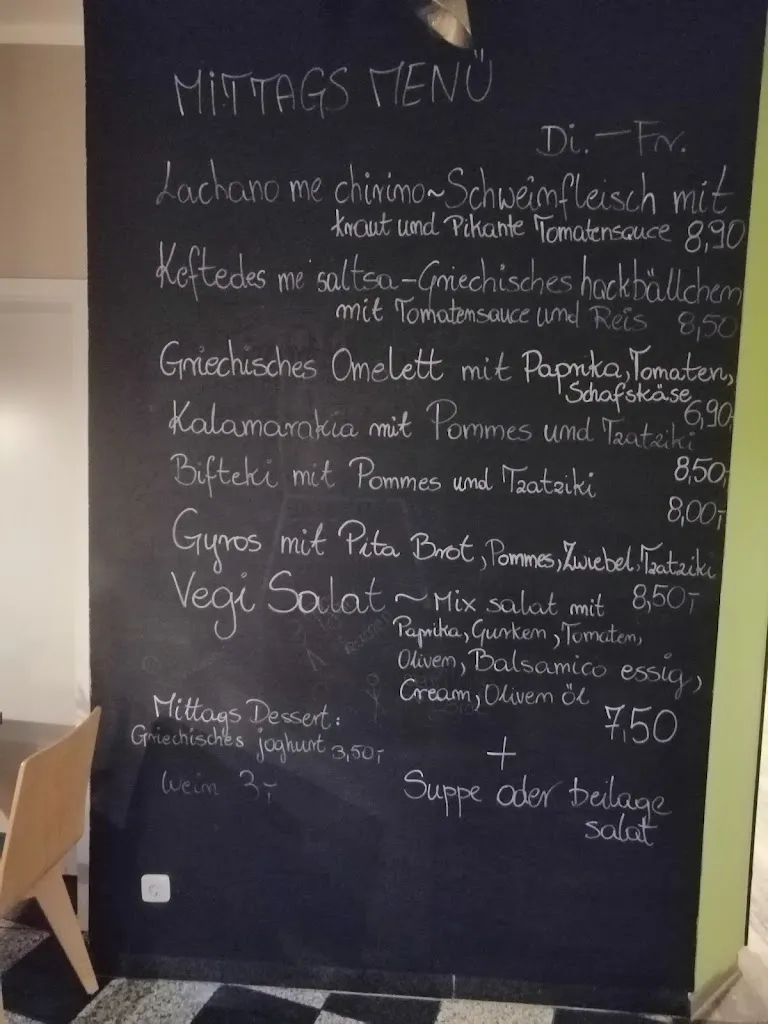 MITTAGS MENÜ
Di. — Fr.
Lachano me chirino ~ Schweinfleisch mit
kraut und Pikante Tomatensauce 8,90
Keftedes me saltsa - Griechisches hackbällchen
mit Tomatensauce und Reis 8,50
Griechisches Omelett mit Paprika, Tomaten,
Schafskäse
6,90
Kalamarakia mit Pommes und Tzatziki
8,50,-
Bifteki mit Pommes und Tzatziki
8,00,-
Gyros mit Pita Brot, Pommes, Zwiebel, Tzatziki
8,50,-
Vegi Salat ~ Mix salat mit
Paprika, Gurken, Tomaten,
Oliven, Balsamico essig,
Cream, Oliven öl
7,50
Mittags Dessert:
Griechisches joghurt 3,50,-
Wein 3,-
+
Suppe oder beilage
salat